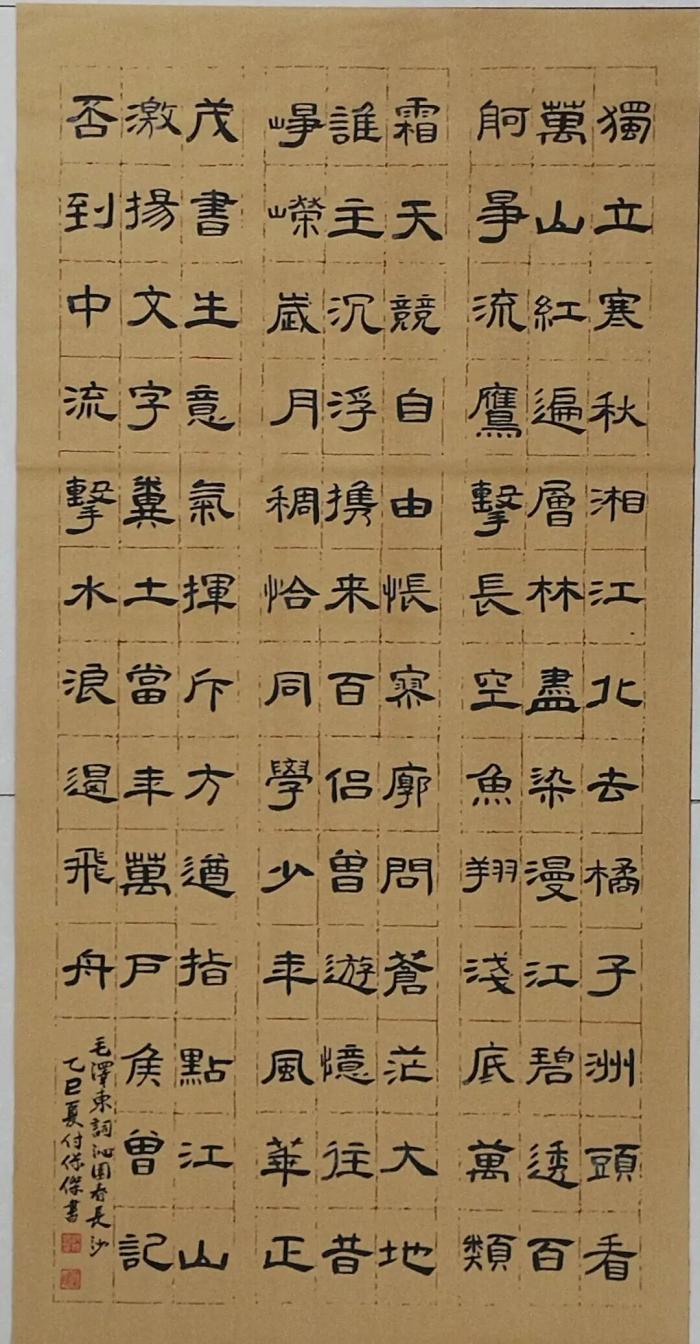 獨立寒秋湘江北去橘子洲頭看
萬山紅遍層林盡染漫江碧透百
舸爭流鷹擊長空魚翔淺底萬類
霜天競自由悵寥廓問蒼茫大地
誰主沉浮携来百侣曾遊憶往昔
崢嶸歲月稠恰同學少年風華正
茂書生意氣揮斥方遒指點江山
激揚文字糞土當年萬戶侯曾記
否到中流擊水浪遏飛舟
毛澤東詞沁園春長沙
乙巳夏付保傑書